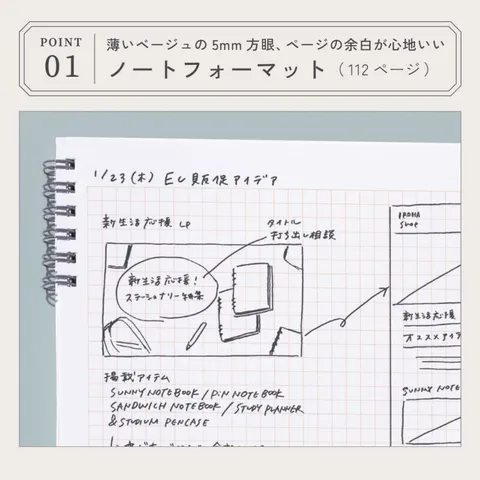 POINT
01
薄いベージュの5mm方眼、ページの余白が心地いい
ノートフォーマット(112ページ)
1/23(木) EC販促アイデア
新生活応援 LP
タイトル
打ち出し相談
新生活応援!
ステーショナリー特集
IROHA
Shop
新生活応援
オススメアイテ
SUNNY NOTE
掲載アイテム
SUNNY NOTEBOOK / PiN NOTEBOOK
SANDWICH NOTEBOOK / STUDY PLANNER
& STUDIUM PENCASE